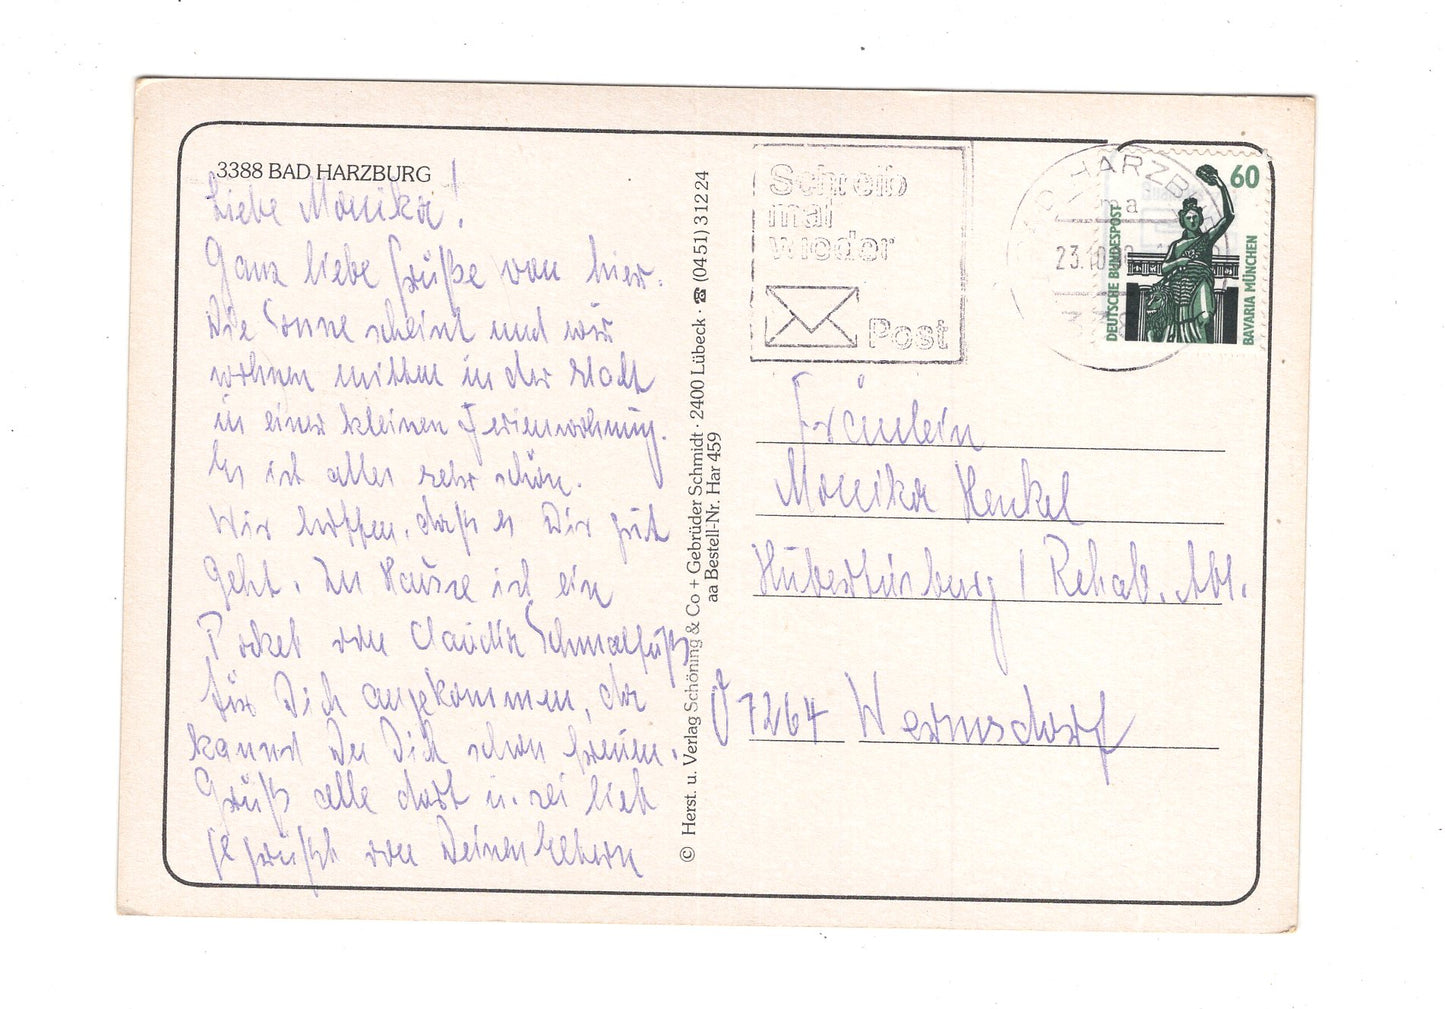 3388 BAD HARZBURG
Liebe Monika!
Ganz liebe Grüße von hier.
Die Sonne scheint und wir
wohnen mitten in der Stadt
in einer kleinen Ferienwohnung.
Es ist alles sehr schön.
Wir hoffen, daß es Dir gut
geht. Zu Hause ist ein
Paket von Claudia Schmalfuß
für Dich angekommen, da
kannst Du Dich schon freuen.
Grüß alle dort u. sei lieb
gegrüßt von Deinen Eltern
© Herst. u. Verlag Schöning & Co + Gebrüder Schmidt · 2400 Lübeck · ☎ (04 51) 3 12 24
aa Bestell-Nr. Har 459
Schreib
mal
wieder
Post
HARZB
a
23.10.
60
DEUTSCHE BUNDESPOST
BAVARIA MÜNCHEN
Fräulein
Monika Henkel
Hubertusburg / Rehab. Abt.
O 7264 Wermsdorf